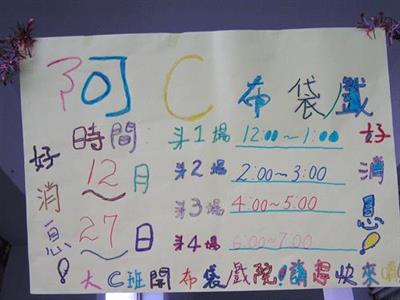 阿C布袋戲
時間:
12月
27日
第1場 12:00~1:00
第2場 2:00~3:00
第3場 4:00~5:00
第4場 6:00~7:00
好消息!
好消息!
大C班開布袋戲院!請趕快來